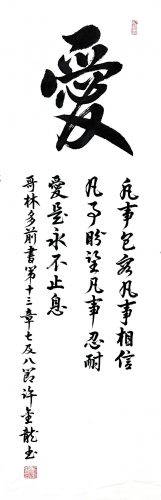 愛
凡事包容凡事相信
凡事盼望凡事忍耐
愛是永不止息
哥林多前書第十三章七及八節许金龍书